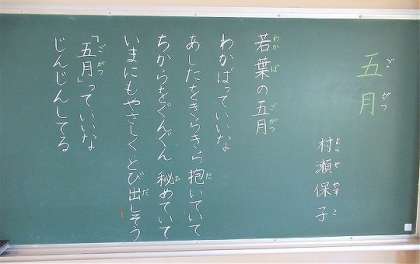 五月
村瀬保子
若葉の五月
わかばっていいな
あしたをきらきら抱いていて
ちからをぐんぐん秘めていて
いまにもやさしくとび出しそう
「五月」っていいな
じんじんしてる